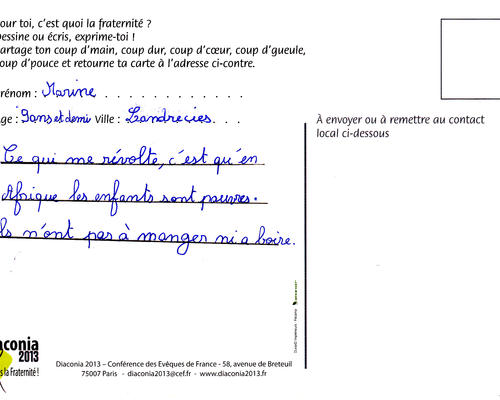 our toi, c'est quoi la fraternité ?
essine ou écris, exprime-toi !
artage ton coup d'main, coup dur, coup d'cœur, coup d'gueule,
oup d'pouce et retourne ta carte à l'adresse ci-contre.
rénom : Marine . . . . . . . . . . . .
ge : 9ans et demi Ville : Landrecies. . .
À envoyer ou à remettre au contact
local ci-dessous
Ce qui me révolte, c'est qu'en
Afrique les enfants sont pauvres.
ls n'ont pas à manger ni a boire.
aconia
2013
s la Fraternité !
Diaconia 2013 – Conférence des Evêques de France - 58, avenue de Breteuil
75007 Paris - diaconia2013@cef.fr - www.diaconia2013.fr